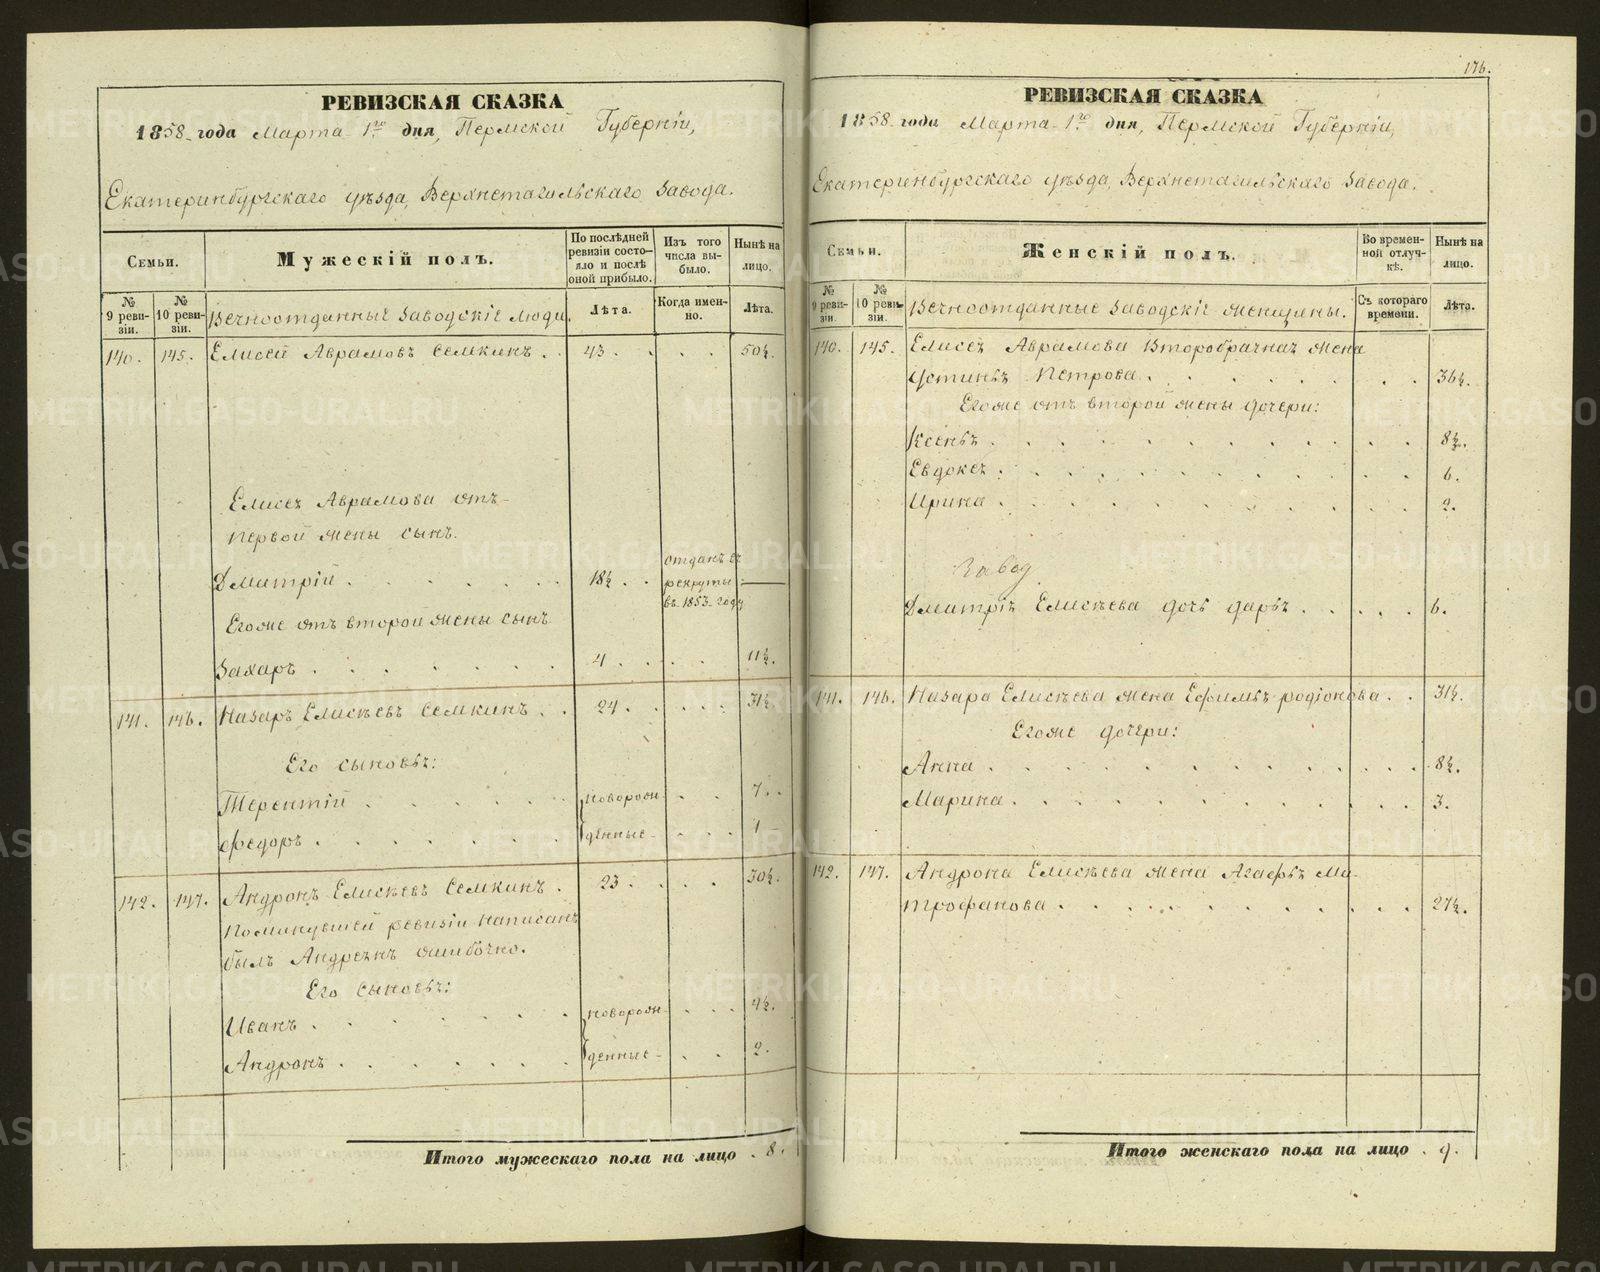 РЕВИЗСКАЯ СКАЗКА
1858 года Марта 1го дня, Пермской Губерніи,
Екатеринбургскаго уѣзда, Верхнетагильскаго Завода.
Семьи.
Мужескій полъ.
По послѣдней ревизіи состояло и послѣ оной прибыло.
Изъ того числа выбыло.
Нынѣ на лицо.
№ 9 ревизіи.
№ 10 ревизіи.
Вечноотданныѣ Заводскіѣ люди.
Лѣта.
Когда именно.
Лѣта.
140. 145. Елисей Аврамовъ Семкинъ . . 43 . . . . 50½.
Елисея Аврамова отъ
первой жены сынъ.
Дмитрій . . . . . . 18½ . . отданъ въ рекруты въ 1853 году —
Егоже отъ второй жены сынъ
Захаръ . . . . . . 4 . . . . 11½.
141. 146. Назаръ Елисѣевъ Семкинъ . . 24 . . . . 31½
Его сыновья:
Терентій . . . . . новорож- . . 7 . .
Федоръ . . . . . . денные . . . 1
142. 147. Андронъ Елисѣевъ Семкинъ . 23 . . . . 30½.
Поминувшей ревизіи написанъ
былъ Андреянъ ошибочно.
Его сыновья:
Иванъ . . . . . . новорож- . . . 4½.
Андронъ . . . . . . денные . . 2.
Итого мужескаго пола на лицо . 8.
176.
РЕВИЗСКАЯ СКАЗКА
1858 года Марта 1го дня, Пермской Губерніи,
Екатеринбургскаго уѣзда, Верхнетагильскаго Завода.
Семьи.
Женскій полъ.
Во временной отлучкѣ.
Нынѣ на лицо.
№ 9 ревизіи.
№ 10 ревизіи.
Вечноотданныѣ Заводскіѣ женщины.
Съ котораго времени.
Лѣта.
140. 145. Елисея Аврамова Второбрачная жена
Устинья Петрова . . . . . . . 36½.
Егоже отъ второй жены дочери:
Ксенья . . . . . . . . . 8½.
Евдокея . . . . . . . . . 6.
Ирина . . . . . . . . . 2.
Завод
Дмитрія Елисѣева дочь дарья . . . . . 6.
141. 146. Назара Елисѣева жена Ефимья родіонова . . 31½.
Егоже дочери:
Анна . . . . . . . . . 8½.
Марина . . . . . . . . . 3.
142. 147. Андрона Елисѣева жена Агафья Ми-
трофанова . . . . . . . . . 27½.
Итого женскаго пола на лицо . 9.
METRIKI.GASO-URAL.RU